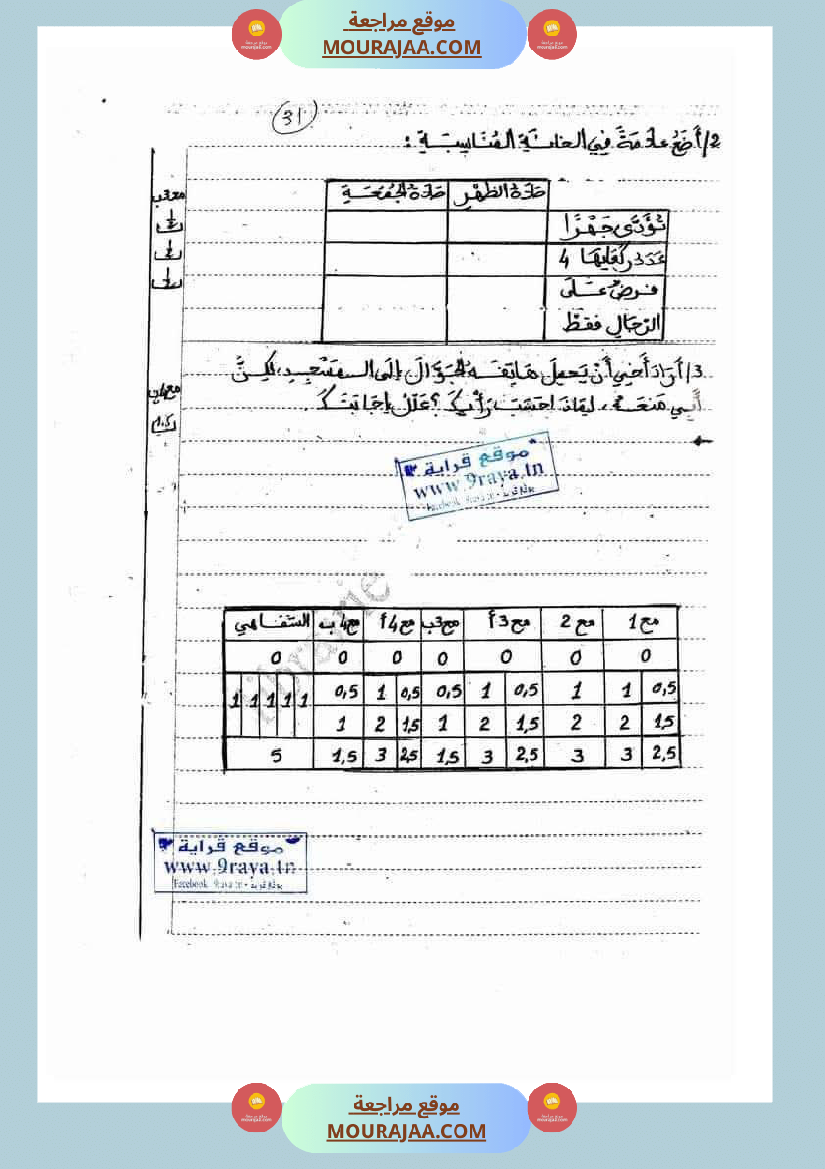 موقع مراجعة
MOURAJAA.COM
31
2/ أَضَعُ علامَةً فِي الخانَةِ المُنَاسِبَةِ :
صَلاَةُ الظُّهْرِ صَلاَةُ الجُمُعَةِ
تُؤَدَّى جَهْرًا
عَدَدُ رَكَعَاتِهَا 4
فَرضٌ عَلَى
الرّجَالِ فقطْ
مع3ب
3/ أَرَادَ أَخِي أَنْ يَحمِلَ هَاتِفَهُ الجَوَّالَ إِلَى المَسْجِدِ، لَكِنَّ
أَبِي مَنَعَهُ، لِمَاذَا حَسَبَ رَأْيِكَ؟ عَلِّلْ إِجَابَتَكَ.
مع4ب
موقع قراية
www.9raya.tn
مع 1 مع 2 مع 3 أ مع3ب مع 4 أ مع 4 ب الشفاهي
0 0 0 0 0 0 0
0,5 1 1 0,5 1 0,5 0,5 1 0,5 1 1 1 1 1
1,5 2 2 1,5 2 1 1,5 2 1
2,5 3 3 2,5 3 1,5 2,5 3 1,5 5
موقع قراية
www.9raya.tn
موقع مراجعة
MOURAJAA.COM